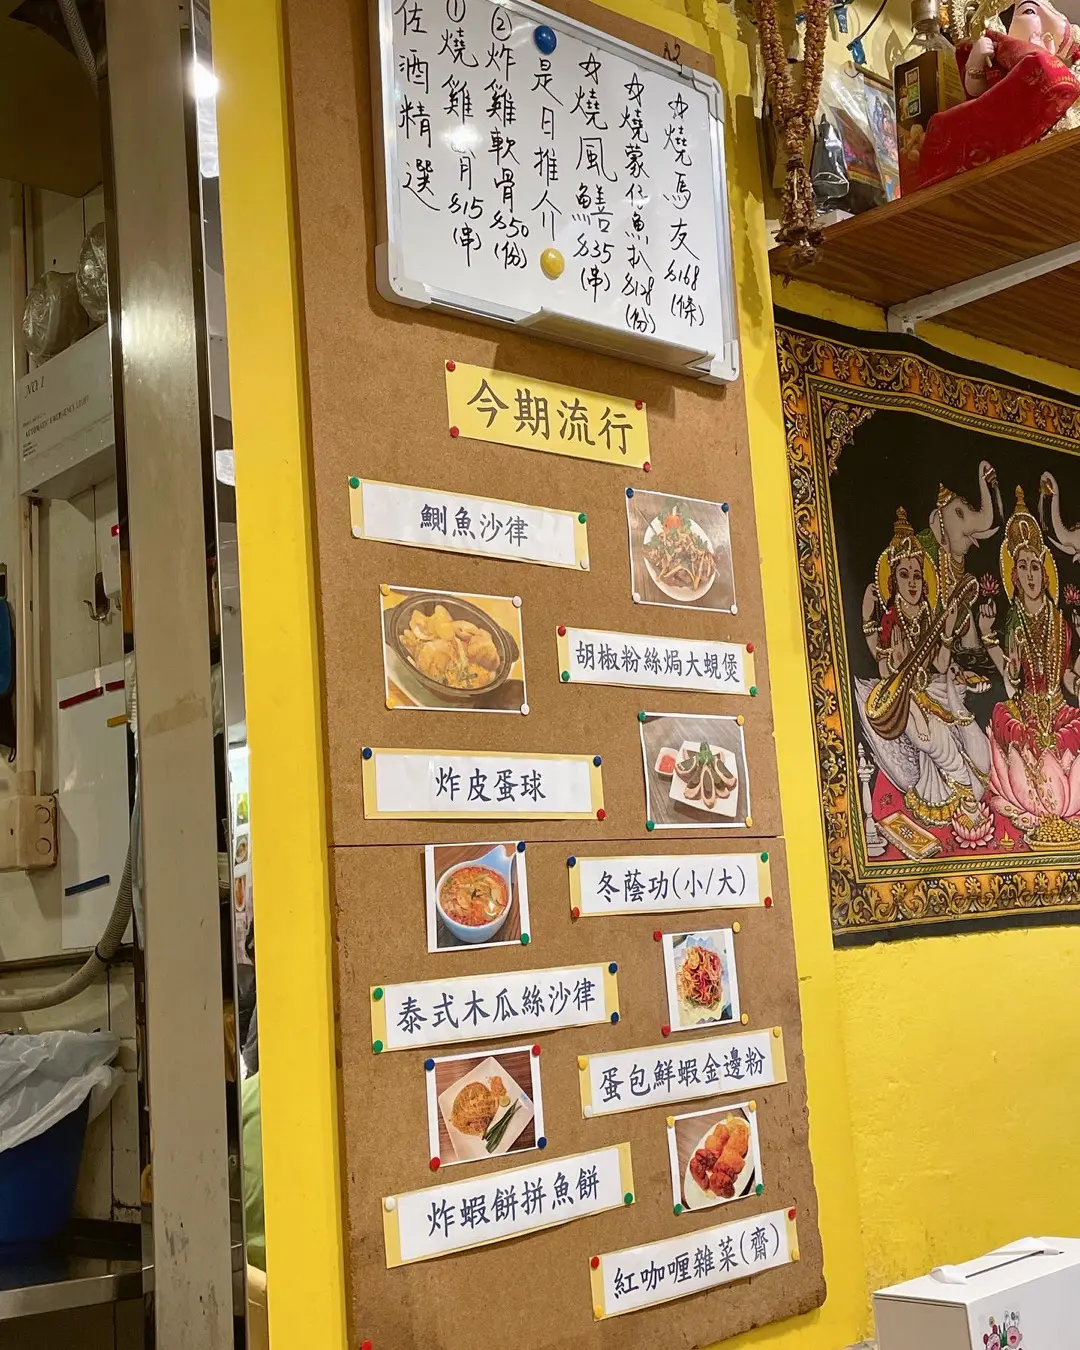 佐酒精選
①燒雞 $15(串)
②炸雞軟骨$50(份)
是日推介
☆燒風鱔$35(串)
☆燒蒙仔魚扒$128(份)
☆燒馬友$168(條)
今期流行
鰂魚沙律
胡椒粉絲焗大蜆煲
炸皮蛋球
冬蔭功(小/大)
泰式木瓜絲沙律
蛋包鮮蝦金邊粉
炸蝦餅拼魚餅
紅咖喱雜菜(齋)
NO.1